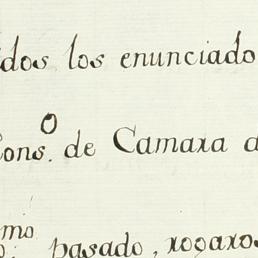 dos los enunciado
Cons.º de Camara a
mo
pasado, rogaros